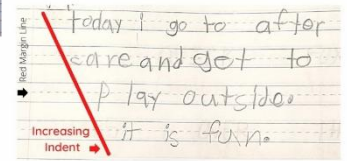 Red Margin Line
today i go to after
care and get to
play outside.
it is fun.
Increasing
Indent